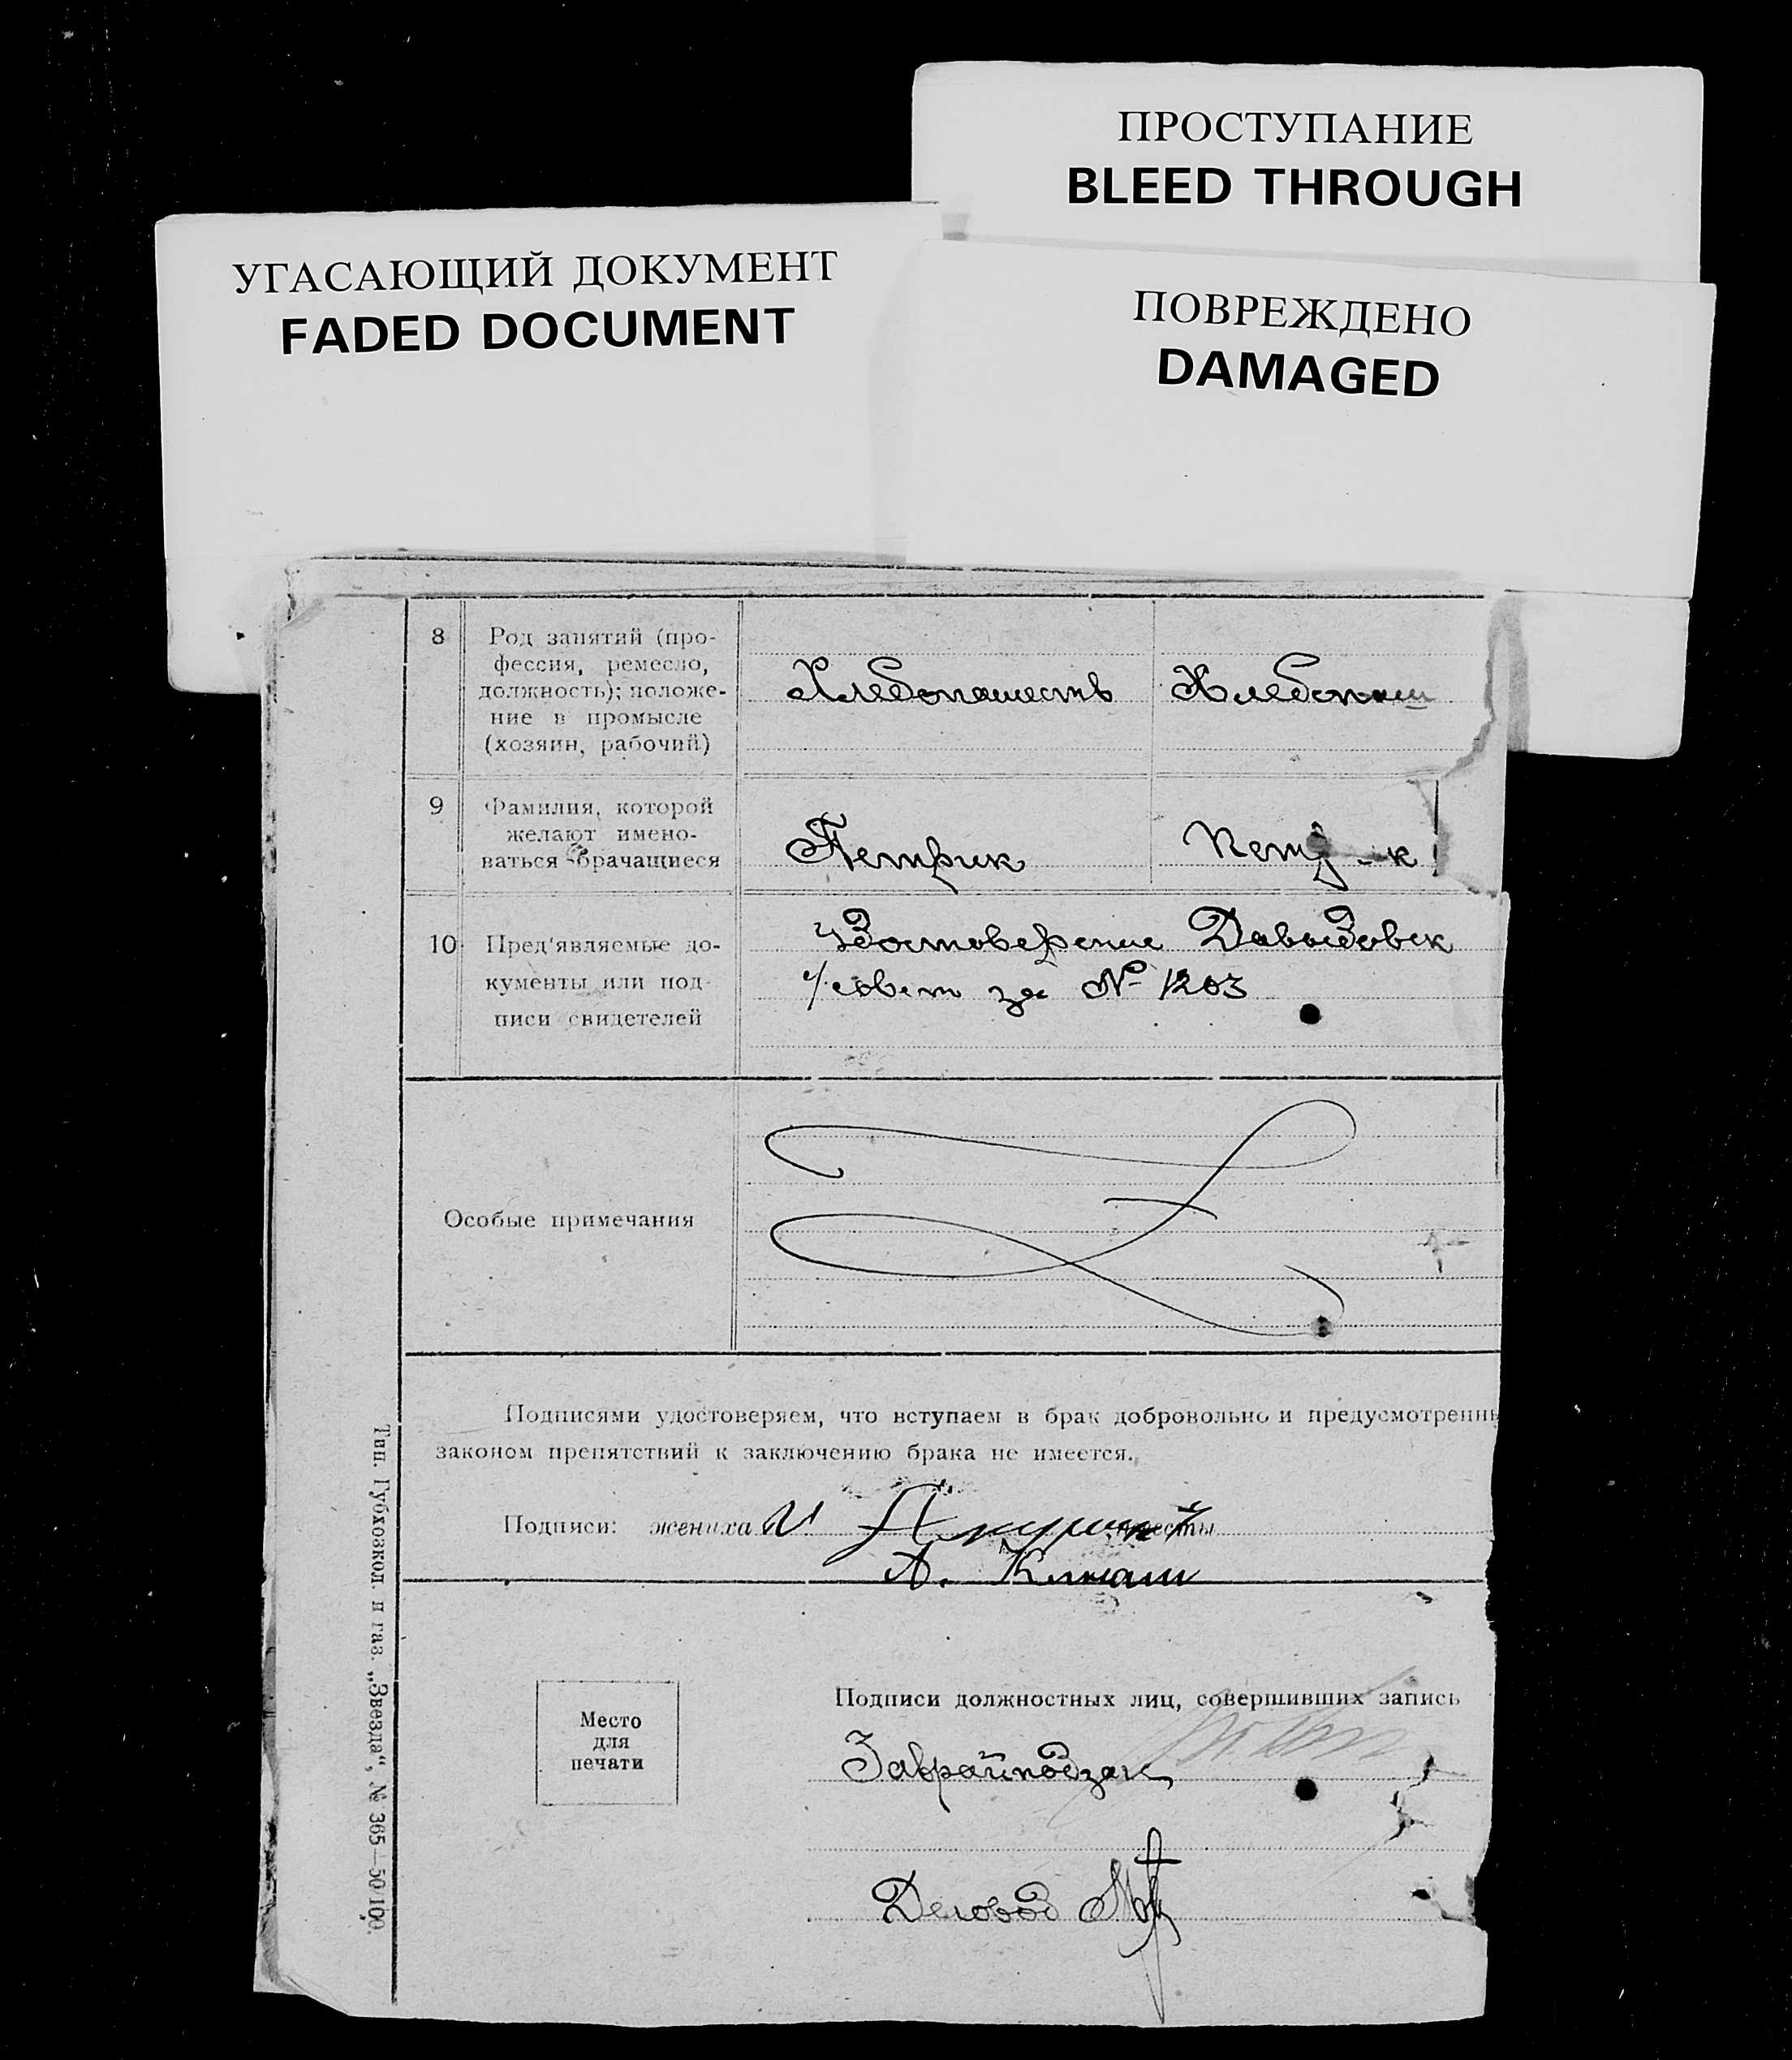 ПРОСТУПАНИЕ
BLEED THROUGH
УГАСАЮЩИЙ ДОКУМЕНТ
FADED DOCUMENT
ПОВРЕЖДЕНО
DAMAGED
8 Род занятий (про-
фессия, ремесло,
должность); положе-
ние в промысле
(хозяин, рабочий)
Хлебопашеств Хлебопаш
9 Фамилия, которой
желают имено-
ваться брачащиеся
Петрик Петр к
10 Пред'являемые до-
кументы или под-
писи свидетелей
Удостоверение Давыдовск
с/совет за № 1203
Особые примечания
Подписями удостоверяем, что вступаем в брак добровольно и предусмотренны
законом препятствий к заключению брака не имеется.
Подписи: жениха И невесты
А.
Место
для
печати
Подписи должностных лиц, совершивших запись
Заврайподзагс
Деловод
Тип. Губхозкол. и газ. „Звезда", № 365—50/100.